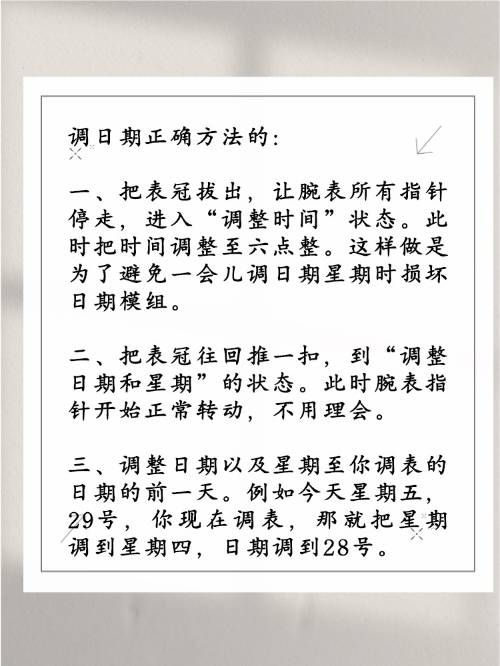 调日期正确方法的：
一、把表冠拔出，让腕表所有指针
停走，进入“调整时间”状态。此
时把时间调整至六点整。这样做是
为了避免一会儿调日期星期时损坏
日期模组。
二、把表冠往回推一扣，到“调整
日期和星期”的状态。此时腕表指
针开始正常转动，不用理会。
三、调整日期以及星期至你调表的
日期的前一天。例如今天星期五，
29号，你现在调表，那就把星期
调到星期四，日期调到28号。